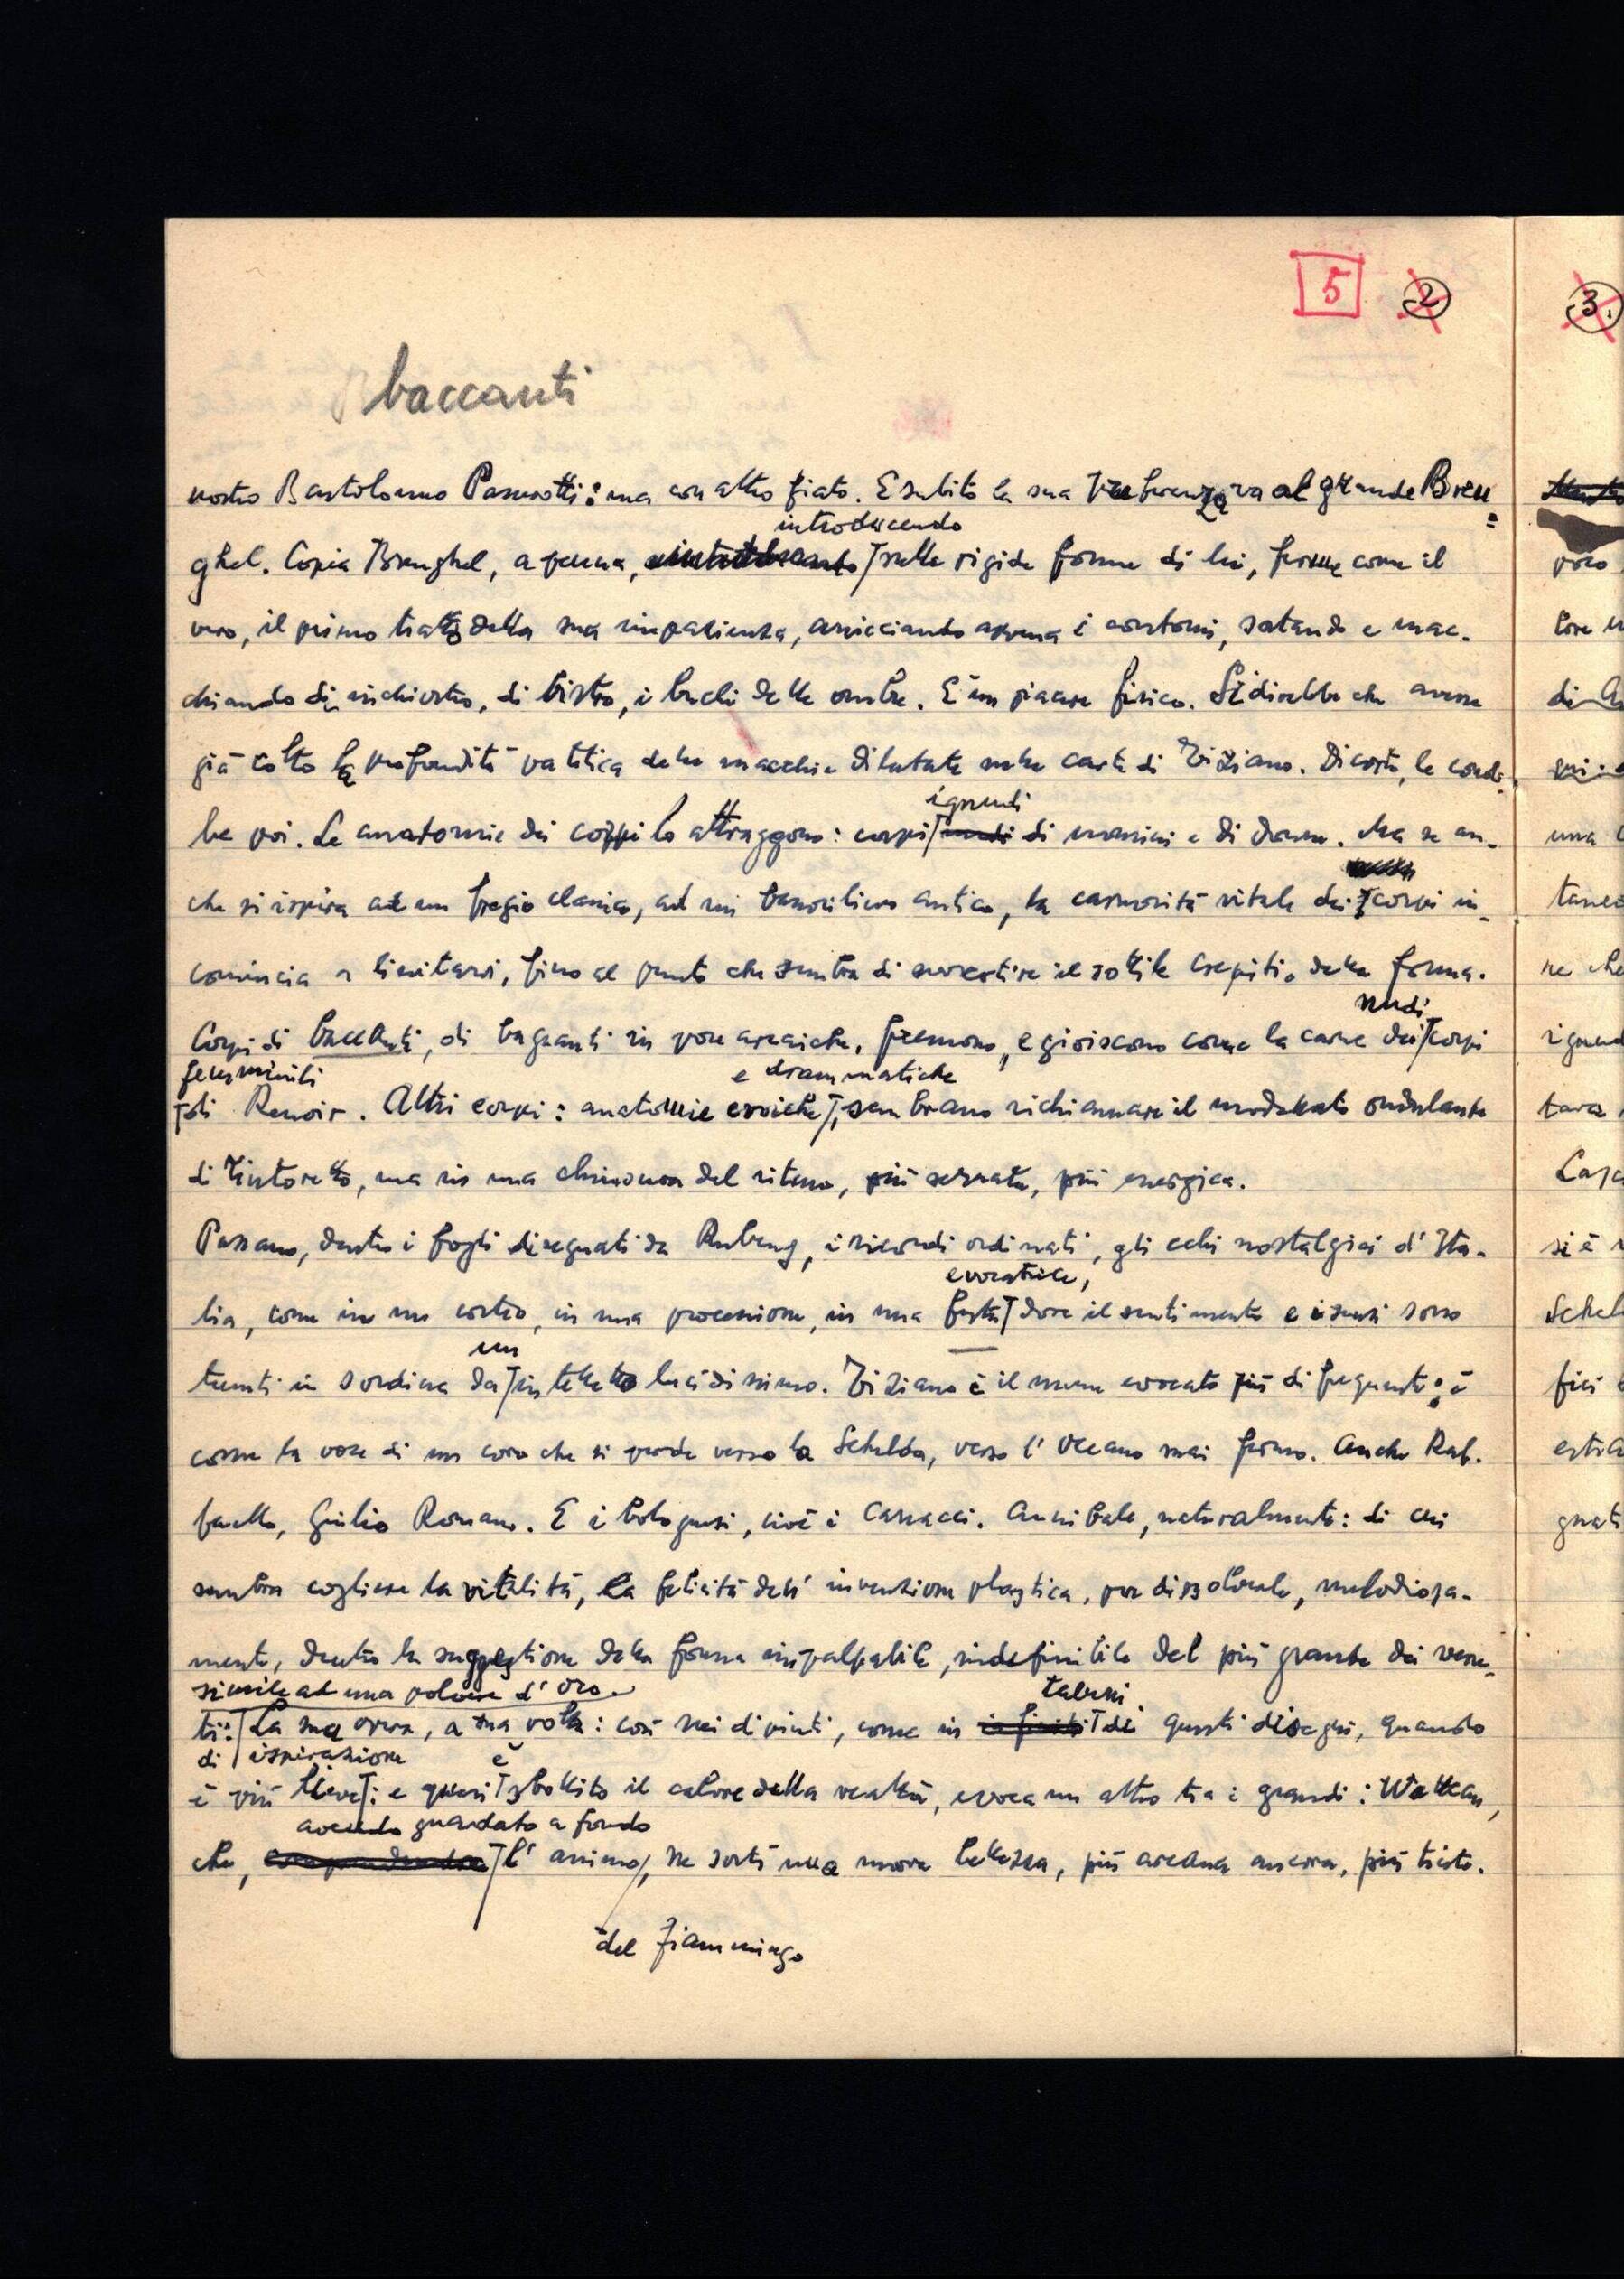 5 2 3.
baccanti
nostro Bartolomeo Passerotti: ma con altro fiato. E subito la sua va al grande Breu=
introducendo
ghel. Copia Breughel, a penna, nelle rigide forme di lui, ferme come il
vero, il primo tratto della sua impazienza, arricciando appena i contorni, sostando e mac-
chiando di inchiostro, di bistro, i buchi delle ombre. È un piacere fisico. Si direbbe che avesse
già colto la profondità patetica delle macchie dilatate nelle carte di Tiziano. Di certo, le
ignudi
be poi. Le anatomie dei corpi lo attraggono: corpi nudi di uomini e di donne. Ma se an-
che si ispira ad un fregio classico, ad un bassorilievo antico, la carnosità vitale dei corpi in-
comincia a lievitarsi, fino al punto che sembra di avvertire il sottile crepitio della forma.
nudi
Corpi di baccanti, di bagnanti in pose arcaiche, fremono, e gioiscono come la carne dei corpi
femminili e drammatiche
di Renoir. Altri corpi: anatomie eroiche, sembrano richiamare il modellato ondulante
di Tintoretto, ma in una chiusura del ritmo, più serrata, più energica.
Passano, dentro i fogli disegnati da Rubens, i ricordi ordinati, gli echi nostalgici d'Ita-
evocatrice,
lia, come in un corteo, in una processione, in una festa dove il sentimento e i sensi sono
un
tenuti in sordina da intelletto lucidissimo. Tiziano è il nume evocato più di frequente: è
come la voce di un coro che si perde verso la Schelda, verso l'Oceano mai fermo. Anche Raf-
faello, Giulio Romano. E i bolognesi, cioè i Carracci. Annibale, naturalmente: di cui
sembra cogliere la vitalità, la felicità dell'invenzione plastica, per dissolverle, melodiosa-
mente, dentro la suggestione della forma impalpabile, indefinibile del più grande dei vene-
simile ad una polvere d'oro.
taluni
ti: La sua opera, a sua volta: così nei dipinti, come in infiniti di questi disegni, quando
di ispirazione è
è più lieve: e quasi sbollito il calore della realtà, evoca un altro tra i grandi: Watteau,
avendo guardato a fondo
che, l'animo, ne sortì una nuova bellezza, più arcana ancora, più triste.
del fiammingo